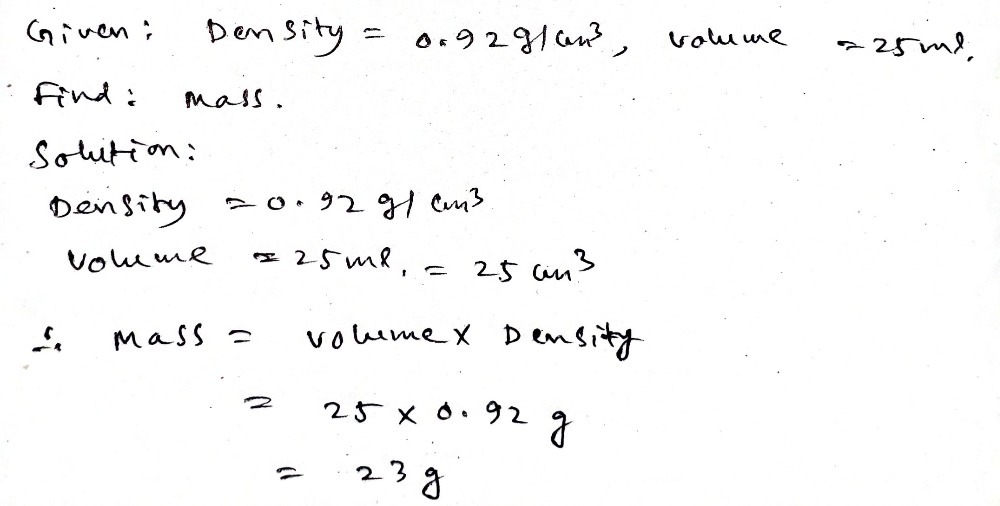 Given: Density = 0.92 g/cm³, volume = 25 ml.
Find: Mass.
Solution:
Density = 0.92 g/cm³
Volume = 25 ml. = 25 cm³
∴ Mass = volume x Density
= 25 x 0.92 g
= 23 g